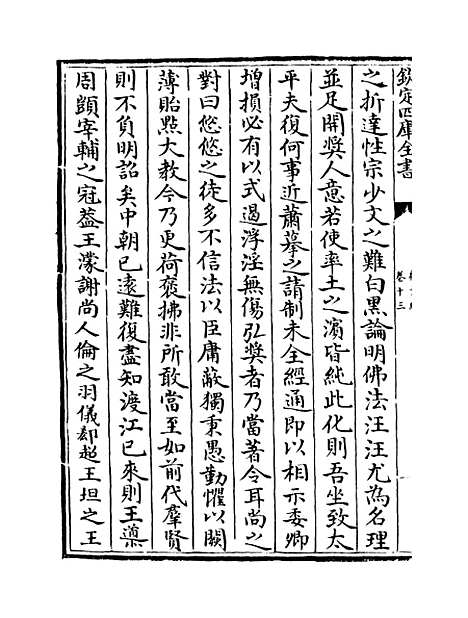 欽定四庫全書
卷十三
之折達性宗少文之難白黑論明佛法汪汪尤為名理
並足開奬人意若使率土之濵皆純此化則吾坐致太
平夫復何事近蕭摹之請制未全經通即以相示委卿
增損必有以式遏浮淫無傷弘奬者乃當著令耳尚之
對曰悠悠之徒多不信法以臣庸蔽獨秉愚勤懼以闕
薄貽㸃大教今乃更荷褒拂非所敢當至如前代羣賢
則不負明詔矣中朝已逺難復盡知渡江已來則王導
周顗宰輔之冠葢王濛謝尚人倫之羽儀郄超王坦之王